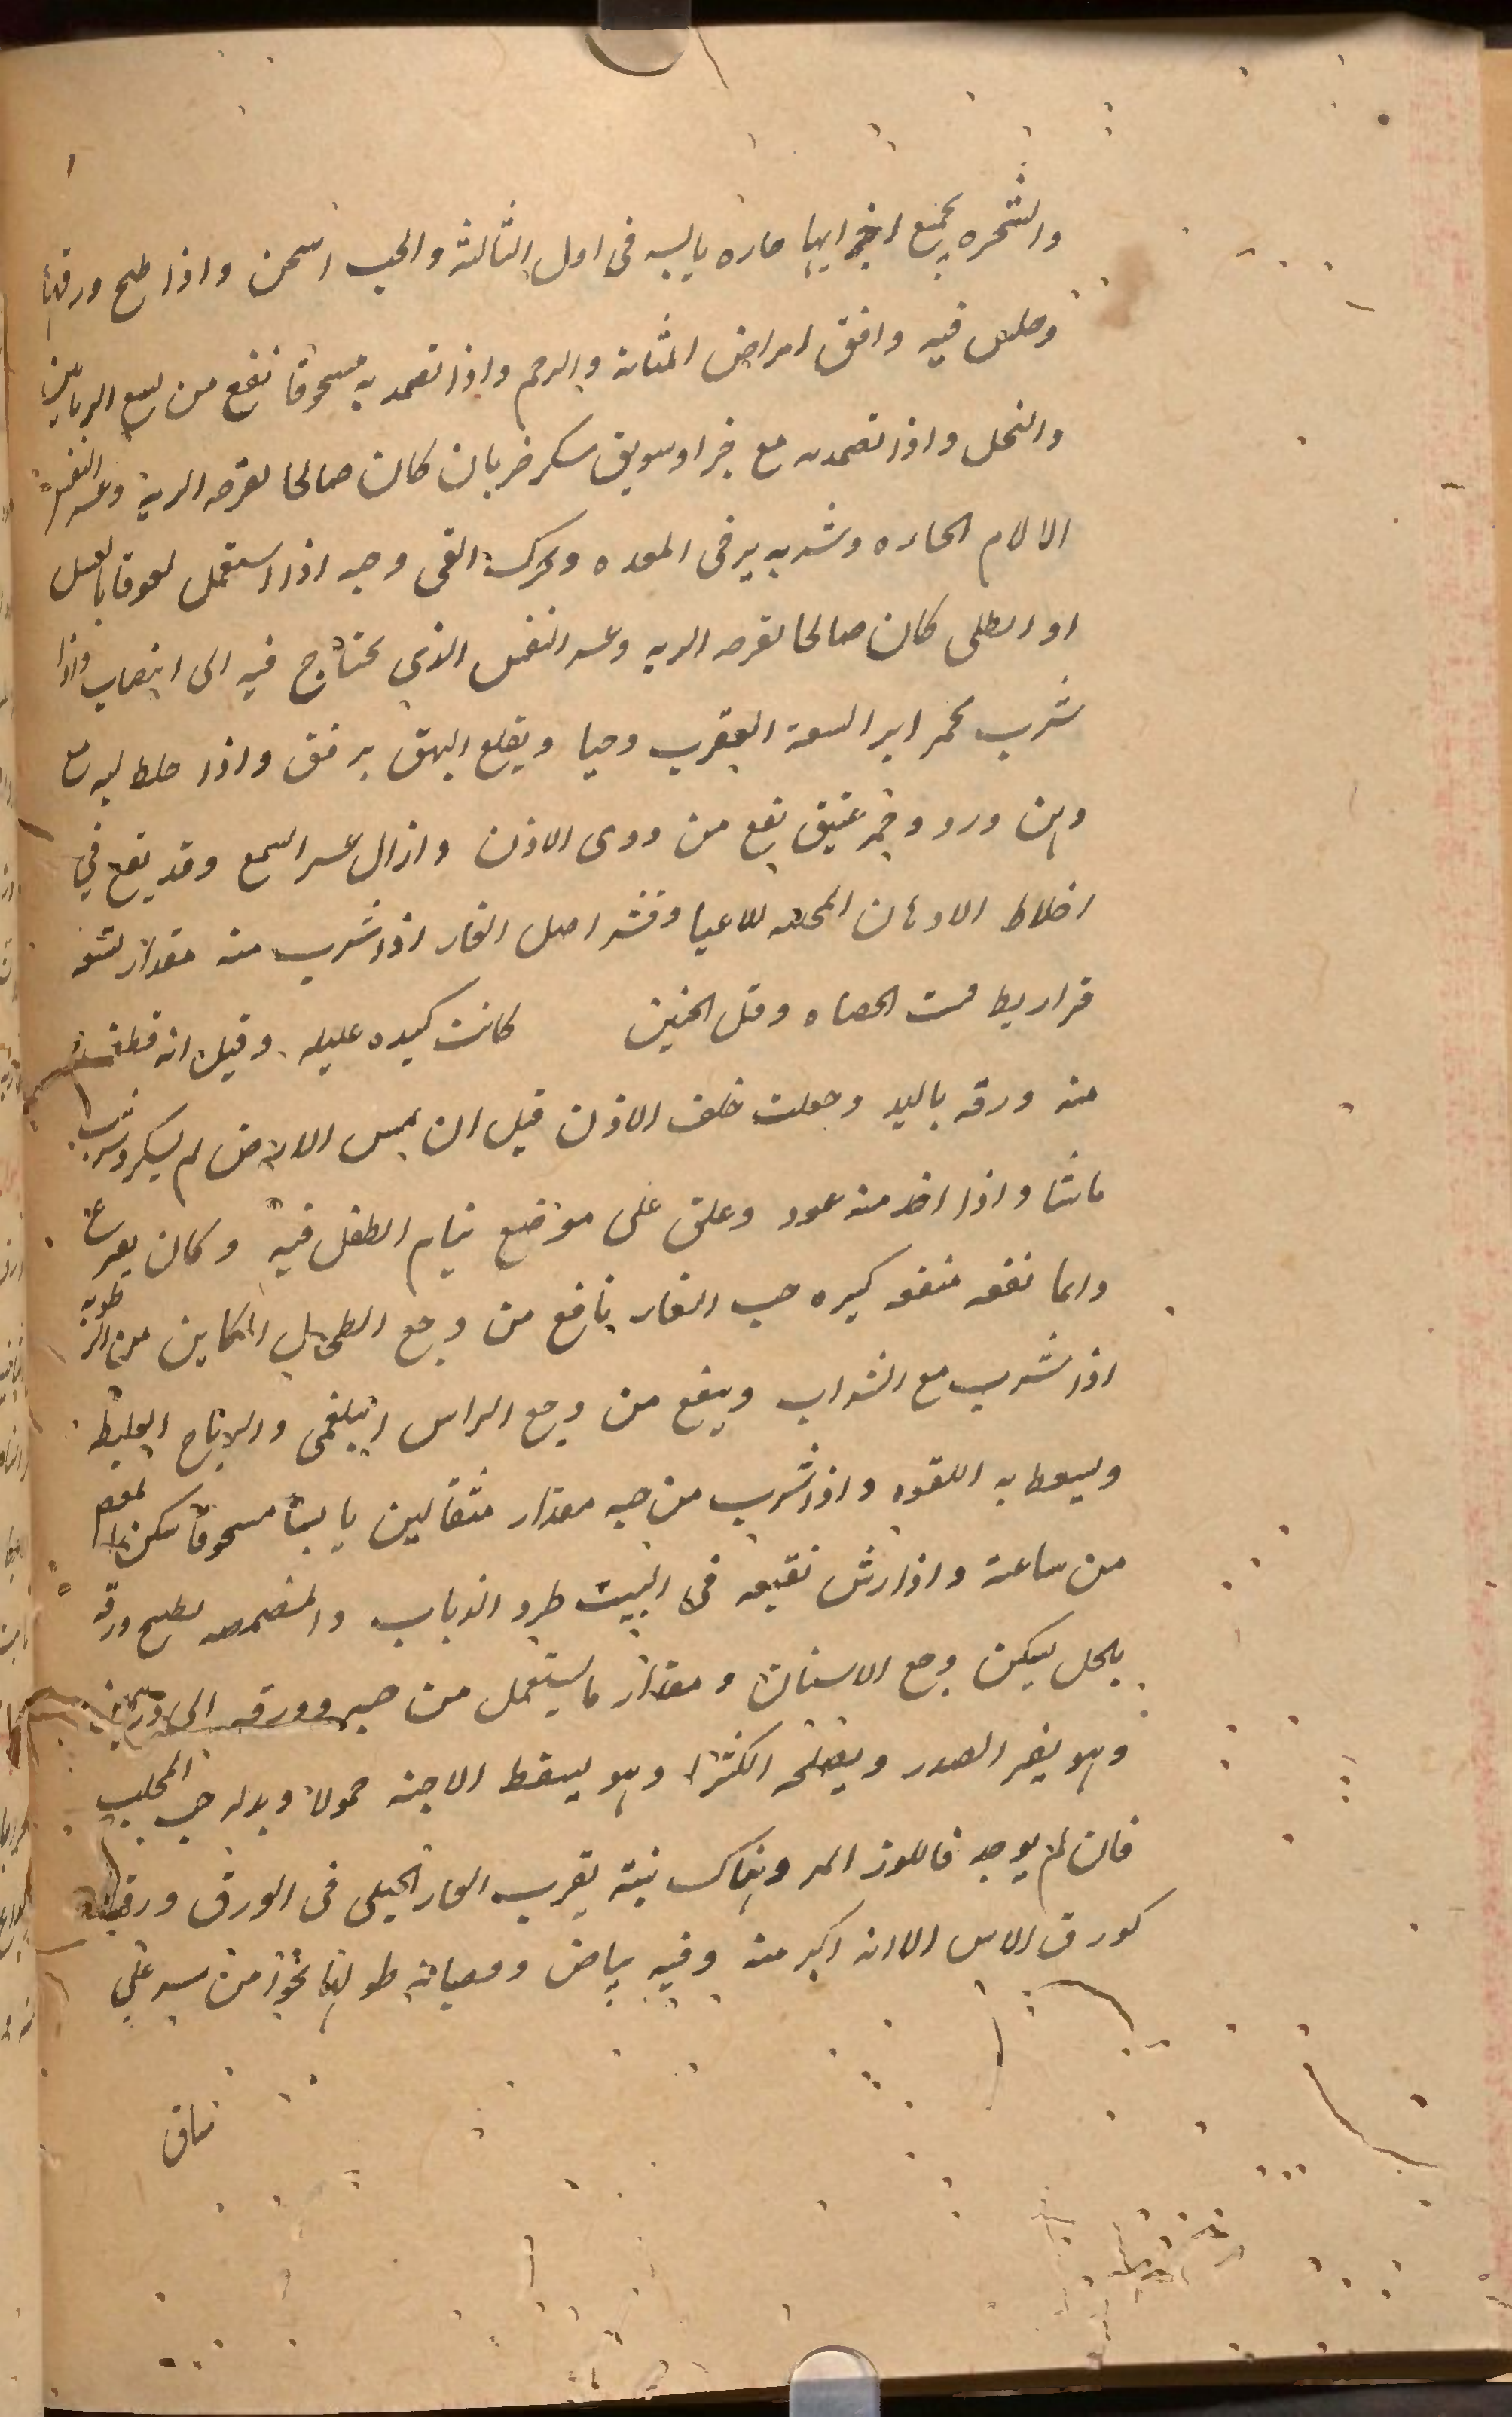 والشجره بجميع اجزايها حاره يابسه فى اول الثالثة والحب اسخن واذا طبخ ورقها
وجلس فيه وافق امراض المثانة والرحم واذا تضمد به مسحوقا نفع من لسع الزنابير
والنحل واذا تضمد به مع خبز او سويق سكن ضربان كان صالحا لقرحه الريه وعسر النفس
الالام الحاره وشربه يرخى المعده ويحرك القى وحبه اذا استعمل لعوقا بالعسل
او الطلى كان صالحا لقرحه الريه وعسر النفس الذي يحتاج فيه الى انتصاب واذا
شرب بخمر ابرا لسعة العقرب وحيا ويقلع البهق برفق واذا خلط لبه مع
دهن ورد وخمر عتيق نفع من دوى الاذن وازال عسر السمع وقد يقع في
اخلاط الادهان المحلله للاعيا وقشر اصل الغار اذا شرب منه مقدار تسعه
قراريط فتت الحصاه وقتل الجنين كانت كبده عليله وقيل انه قطفت
منه ورقه باليد وجعلت خلف الاذن قبل ان يمس الارض لم يسكر وشرب
ماشا واذا اخذ منه عود وعلق على موضع ينام الطفل فيه وكان يفزع
دايما نفعه منفعه كبيره حب الغار نافع من وجع الطحال الكاين من الرطوبه
اذا شرب مع الشراب وينفع من وجع الراس البلغمى والرياح الغليظه
ويسعط به اللقوه واذا شرب من حبه مقدار مثقالين يابسا مسحوقا سكن المغص
من ساعة واذا رش نقيعه فى البيت طرد الذباب والمضمضه بطبيخ ورقه
بالخل يسكن وجع الاسنان ومقدار ما يستعمل من حبه وورقه الى درهمين
وهو يضر الصدر ويصلحه الكثيرا وهو يسقط الاجنه حمولا وبدله حب المحلب
فان لم يوجد فاللوز المر وهناك نبتة يقرب الغار الجبلى فى الورق ورقها
كورق الاس الا انه اكبر منه وفيه بياض وقضبانه طولها نحو من شبر على
ساق